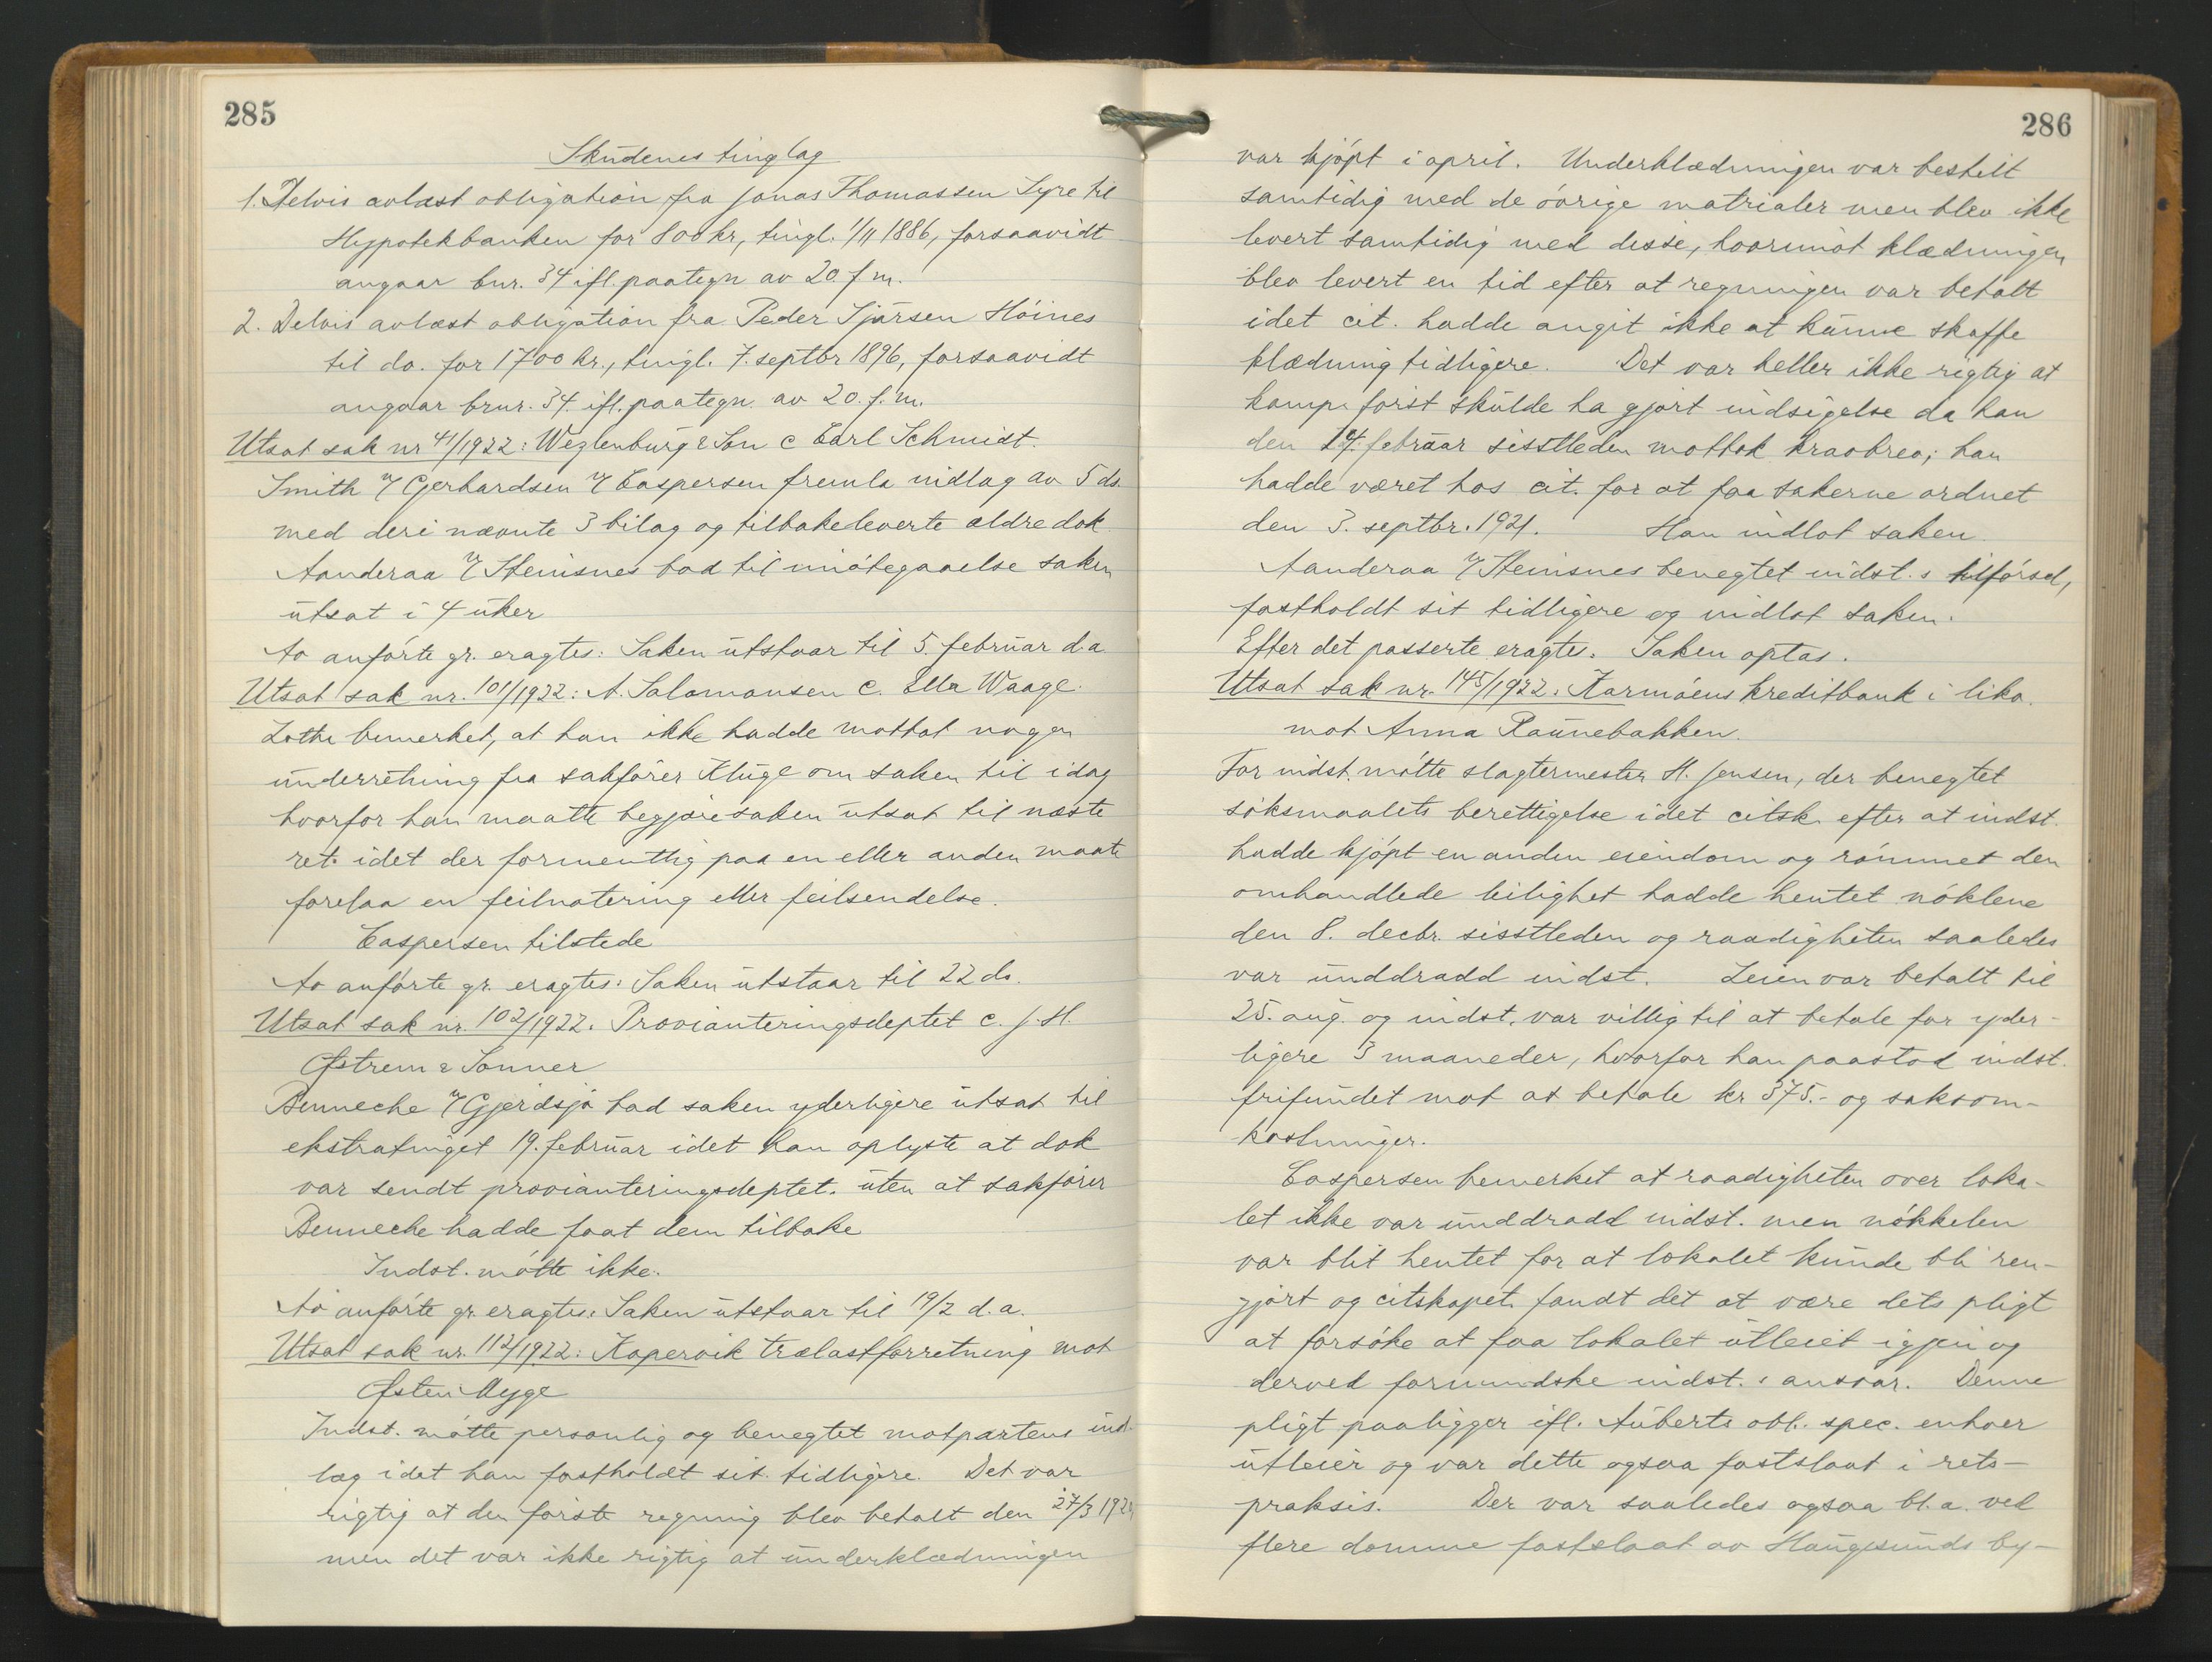 285
Skudenes tinglag
1. Delvis avlæst obligation fra Jonas Thomassen Syre til
Hypotekbanken for 800 kr, tingl. 1/11 1886, forsaavidt
angaar bnr. 34 ifl. paategn av 20. f m.
2. Delvis avlæst obligation fra Peder Sjursen Höines
til do. for 1700 kr., tingl. 7. septbr 1896, forsaavidt
angaar brnr. 34. ifl. paategn. av 20. f. m.
Utsat sak nr 41/1922: Weglenburg & Søn c Carl Schmidt.
Smith v/ Gerhardsen v/ Caspersen fremla indlag av 5 ds.
med deri nævnte 3 bilag og tilbakeleverte ældre dok
Aanderaa v/ Steinsnes bad til imötegaaelse saken
utsat i 4 uker
Av anförte gr. eragtes: Saken utstaar til 5. februar d.a
Utsat sak nr. 101/1922: A. Salomonsen c. Ella Waage.
Lothe bemerket, at han ikke hadde mottat nogen
underretning fra sakförer Kluge om saken til idag
hvorfor han maatte begjære saken utsat til næste
ret. idet der formentlig paa en eller anden maate
forelaa en feilnotering eller feilsendelse.
Caspersen tilstede
Av anförte gr. eragtes: Saken utstaar til 22 ds.
Utsat sak nr. 102/1922. Provianteringsdeptet c. J. H.
Østrem & Sönner
Benneche v/ Gjerdsjö bad saken yderligere utsat til
ekstratinget 19. februar idet han oplyste at dok
var sendt provianteringsdeptet. uten at sakförer
Benneche hadde faat dem tilbake
Indst. mötte ikke.
Av anförte gr. eragtes: Saken utstaar til 19/2 d. a.
Utsat sak nr. 112/1922: Kopervik trælastforretning mot
Østen Myge
Indst. mötte personlig og benegtet motpartens ind-
læg idet han fastholdt sit tidligere. Det var
rigtig at den förste regning blev betalt den 27/3 192
men det var ikke rigtig at underklædningen
286
var kjöpt i april. Underklædningen var bestilt
samtidig med de övrige matrialer men blev ikke
levert samtidig med disse, hvorimot klædningen
blev levert en tid efter at regningen var betalt
idet cit. hadde angit ikke at kunne skaffe
klædning tidligere. Det var heller ikke rigtig at
komp. först skulde ha gjort indsigelse da han
den 14. februar sisstleden mottok kravbrev; han
hadde været hos cit. for at faa sakerne ordnet
den 3. septbr. 1921. Han indlot saken.
Aanderaa v/ Steinsnes benegtet indst.s tilförsel,
fastholdt sit tidligere og indlot saken.
Efter det passerte eragtes: Saken optas.
Utsat sak nr. 145/1922. Karmöens kreditbank i likv.
mot Anna Raunebakken.
For indst. mötte slagtermester H. Jensen, der benegtet
söksmaalets berettigelse idet citsk. efter at indst.
hadde kjöpt en anden eiendom og römmet den
omhandlede leilighet hadde hentet nöklene
den 8. decbr. sisstleden og raadigheten saaledes
var unddradd indst. Leien var betalt til
25. aug. og indst. var villig til at betale for yder-
ligere 3 maaneder, hvorfor han paastod indst.
frifundet mot at betale kr 375.- og saksom-
kostninger.
Caspersen bemerket at raadigheten over loka-
let ikke var unddradd indst. men nökkelen
var blit hentet for at lokalet kunde bli ren-
gjort og citskapet fandt det at være dets pligt
at forsöke at faa lokalet utleiet igjen og
derved formindske indst.s ansvar. Denne
pligt paaligger ifl. Auberts obl. spec. enhver
utleier og var dette ogsaa fastslaat i rets-
praksis. Der var saaledes ogsaa bl.a. ved
flere domme fastslaat av Haugesunds by-